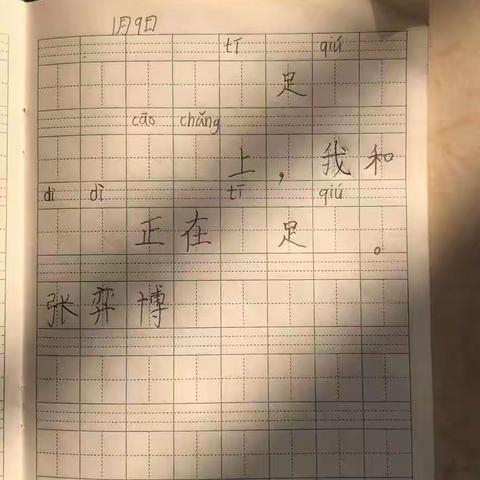 1月9日
tī qiú
足
cāo chǎng
上，我和
dì dì tī qiú
正在 足 。
张弈博